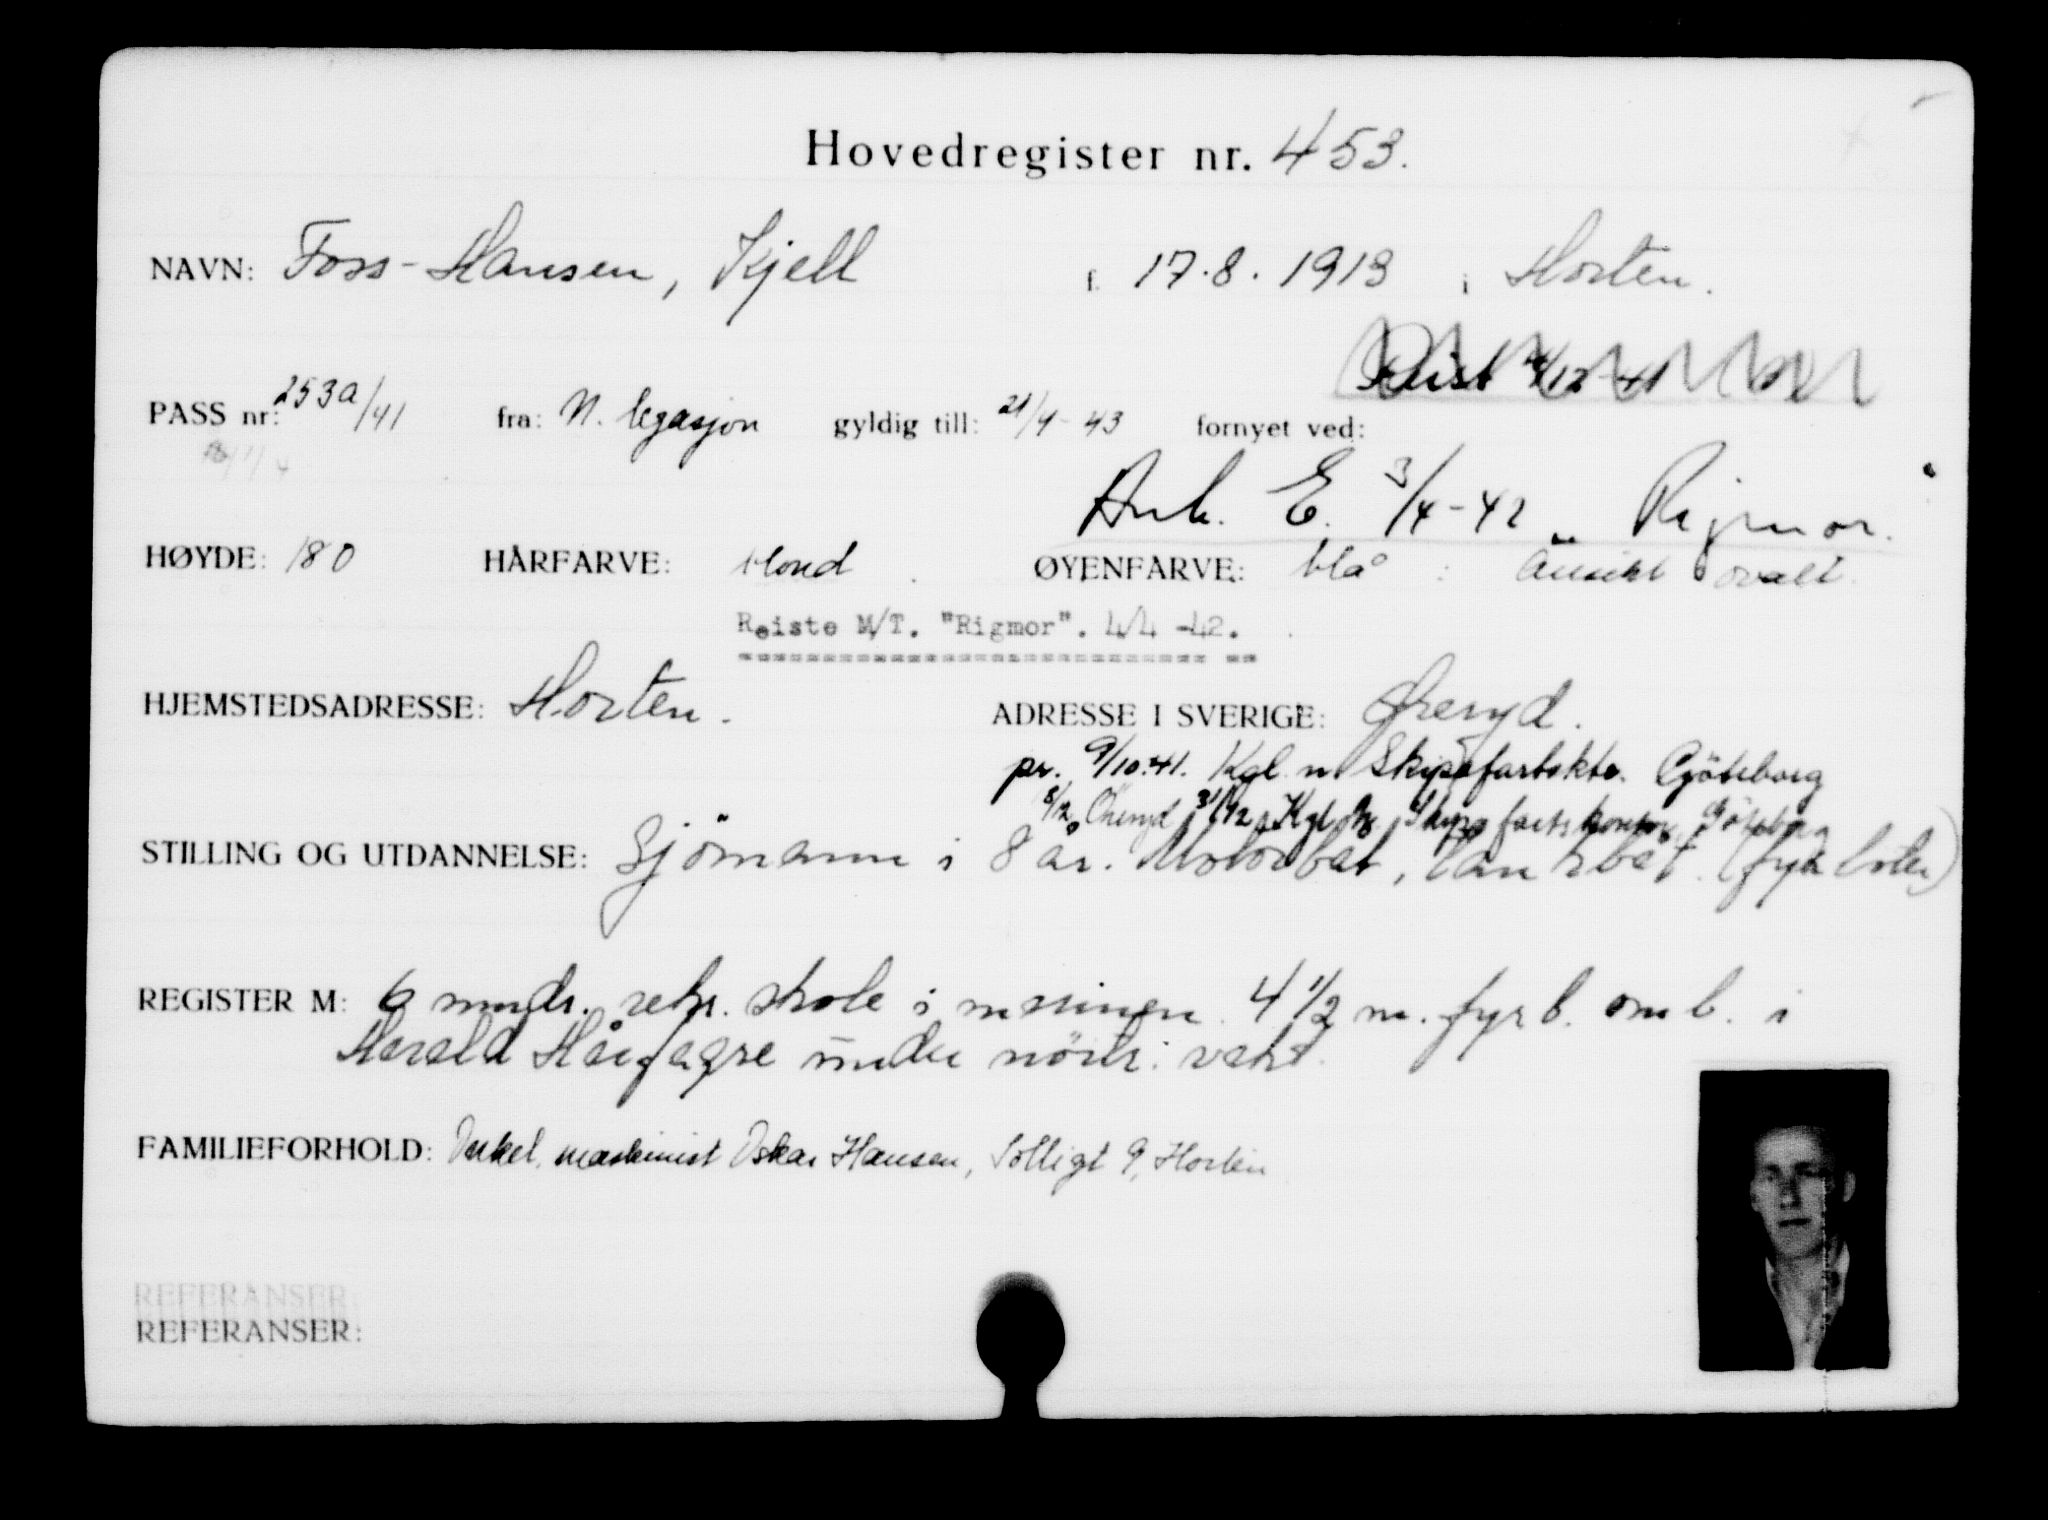 Hovedregister nr. 453.
NAVN: Foss-Hansen, Kjell f. 17.8.1913 i Horten.
Reist /12-41
PASS nr: 253a/41 fra: N. legasjon gyldig till: 21/4-43 fornyet ved:
Ank. E. 3/4-42 Rigmor.
HØYDE: 180 HÅRFARVE: blond ØYENFARVE: blå Ansikt ovalt.
Reiste M/T. "Rigmor". 4/4 -42.
HJEMSTEDSADRESSE: Horten. ADRESSE I SVERIGE: Öreryd.
pr. 9/10.41. Kgl. n Skipsfartsktr. Göteborg
8/12 Öreryd 31/12 Kgl. N. Skipsfartskontor, Göteborg
STILLING OG UTDANNELSE: Sjömann i 8 år. Motorbåt, tankbåt. (fyrböter)
REGISTER M: 6 mndr. rekr. skole i marinen. 4 1/2 m. fyrb. omb. i
Harald Hårfagre under nöitr. vakt.
FAMILIEFORHOLD: Onkel, maskinist Oskar Hansen, Solligt 9, Horten
REFERANSER:
REFERANSER: